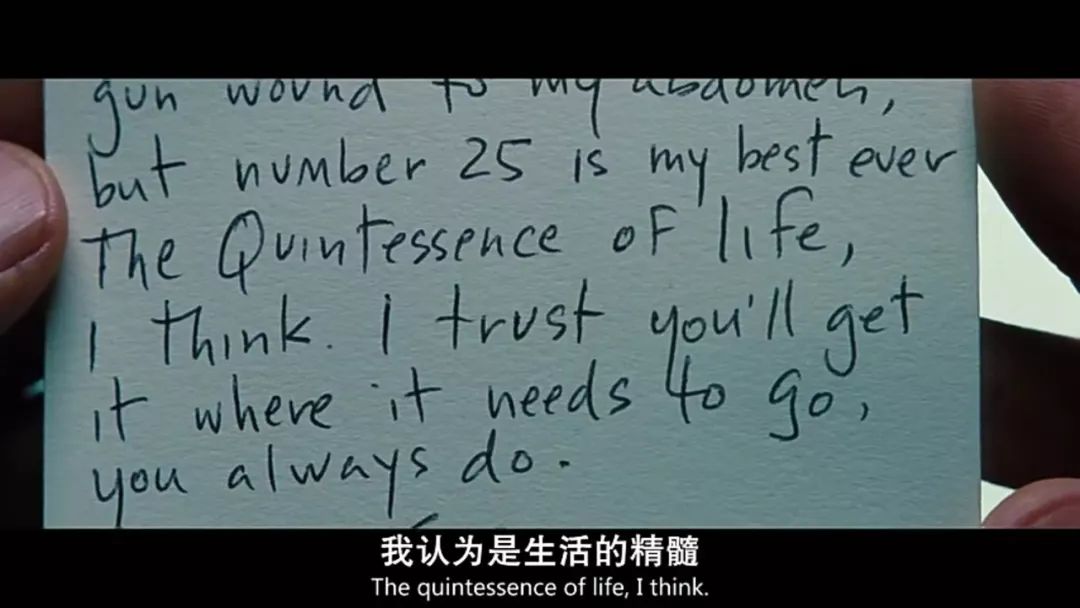 gun wound to my abdomen,
but number 25 is my best ever
The Quintessence of life,
I think. I trust you'll get
it where it needs to go,
you always do.
我认为是生活的精髓
The quintessence of life, I think.